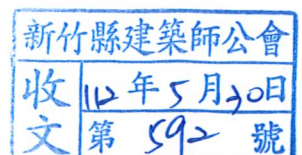 新竹縣建築師公會
收文
112年5月30日
第592號